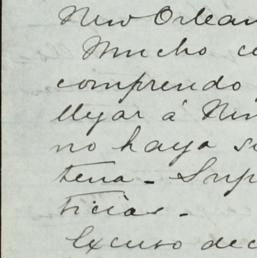 New Orlean
Mucho ce
comprendo
llegar á
no haya
tena - Sup
ticias -
Excuso dec